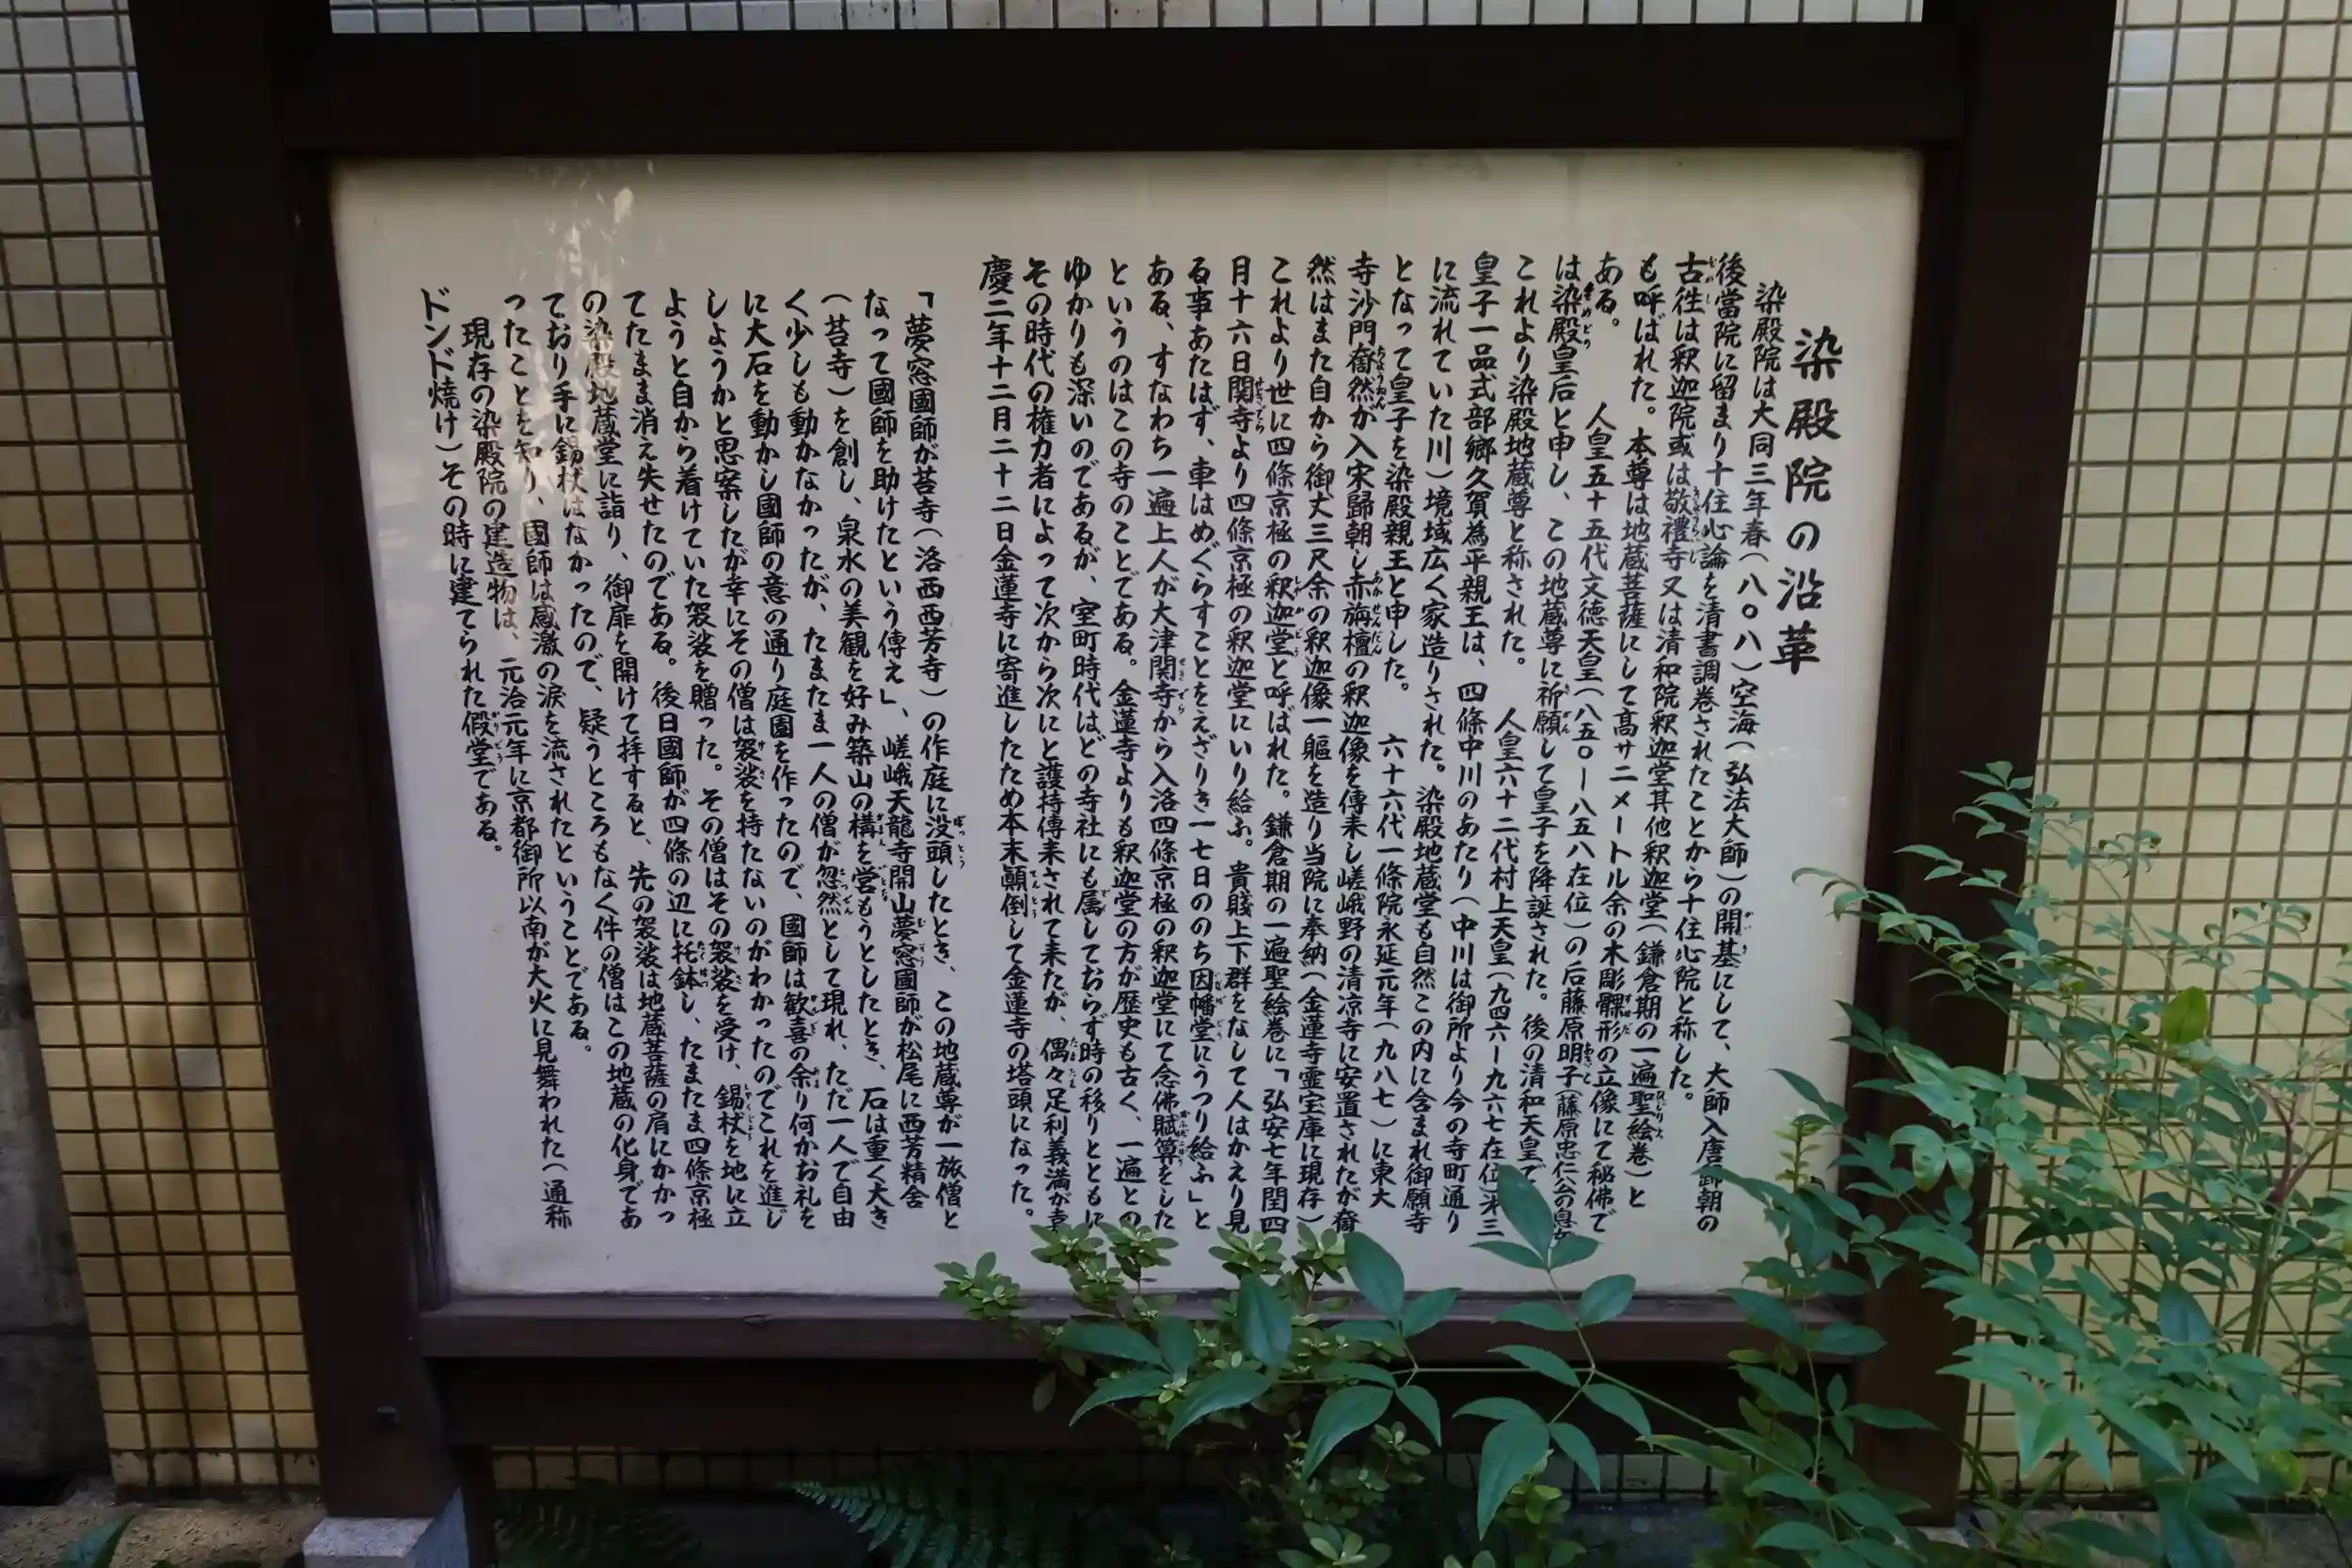 染殿院の沿革
染殿院は大同三年春(八〇八)空海(弘法大師)の開基にして、大師入唐御朝の
後當院に留まり十住心論を清書調巻されたことから十住心院と称した。
古徃は釈迦院或は敬禮寺又は清和院釈迦堂其他釈迦堂(鎌倉期の一遍聖絵巻)と
も呼ばれた。本尊は地蔵菩薩にして高サ二メートル余の木彫髁形の立像にて秘佛で
ある。 人皇五十五代文徳天皇(八五〇ー八五八在位)の后藤原明子(藤原忠仁公の息女
は染殿皇后と申し、この地蔵尊に祈願して皇子を降誕された。後の清和天皇で
これより染殿地蔵尊と称された。 人皇六十二代村上天皇(九四六ー九六七在位)第三
皇子一品式部郷久賀為平親王は、四條中川のあたり(中川は御所より今の寺町通り
に流れていた川)境域広く家造りされた。染殿地蔵堂も自然この内に含まれ御願寺
となって皇子を染殿親王と申した。 六十六代一條院永延元年(九八七)に東大
寺沙門奝然が入宋歸朝し赤栴檀の釈迦像を傳来し嵯峨野の清凉寺に安置されたが奝
然はまた自から御丈三尺余の釈迦像一軀を造り当院に奉納(金蓮寺霊宝庫に現存)
これより世に四條京極の釈迦堂と呼ばれた。鎌倉期の一遍聖絵巻に「弘安七年閏四
月十六日関寺より四條京極の釈迦堂にいり給ふ。貴賤上下群をなして人はかえり見
る事あたはず、車はめぐらすことをえざりき一七日ののち因幡堂にうつり給ふ」と
ある、すなわち一遍上人が大津関寺から入洛四條京極の釈迦堂にて念佛賦算をした
というのはこの寺のことである。金蓮寺よりも釈迦堂の方が歴史も古く、一遍との
ゆかりも深いのであるが、室町時代はどの寺社にも属しておらず時の移りとともに
その時代の権力者によって次から次にと護持傳来されて来たが、偶々足利義満が嘉
慶二年十二月二十二日金蓮寺に寄進したため本末顚倒して金蓮寺の塔頭になった。
「夢窓國師が苔寺(洛西西芳寺)の作庭に没頭したとき、この地蔵尊が一旅僧と
なって國師を助けたという傳え」、嵯峨天龍寺開山夢窓國師が松尾に西芳精舎
(苔寺)を創し、泉水の美観を好み築山の構を営もうとしたとき、石は重く大き
く少しも動かなかったが、たまたま一人の僧が忽然として現れ、ただ一人で自由
に大石を動かし國師の意の通り庭園を作ったので、國師は歓喜の余り何かお礼を
しようかと思案したが幸にその僧は袈裟を持たないのがわかったのでこれを進じ
ようと自から着けていた袈裟を贈った。その僧はその袈裟を受け、錫杖を地に立
てたまま消え失せたのである。後日國師が四條の辺に托鉢し、たまたま四條京極
の染殿地蔵堂に詣り、御扉を開けて拝すると、先の袈裟は地蔵菩薩の肩にかかっ
ており手に錫杖はなかったので、疑うところもなく件の僧はこの地蔵の化身であ
ったことを知り、國師は感激の涙を流されたということである。
現存の染殿院の建造物は、元治元年に京都御所以南が大火に見舞われた(通称
ドンド焼け)その時に建てられた假堂である。